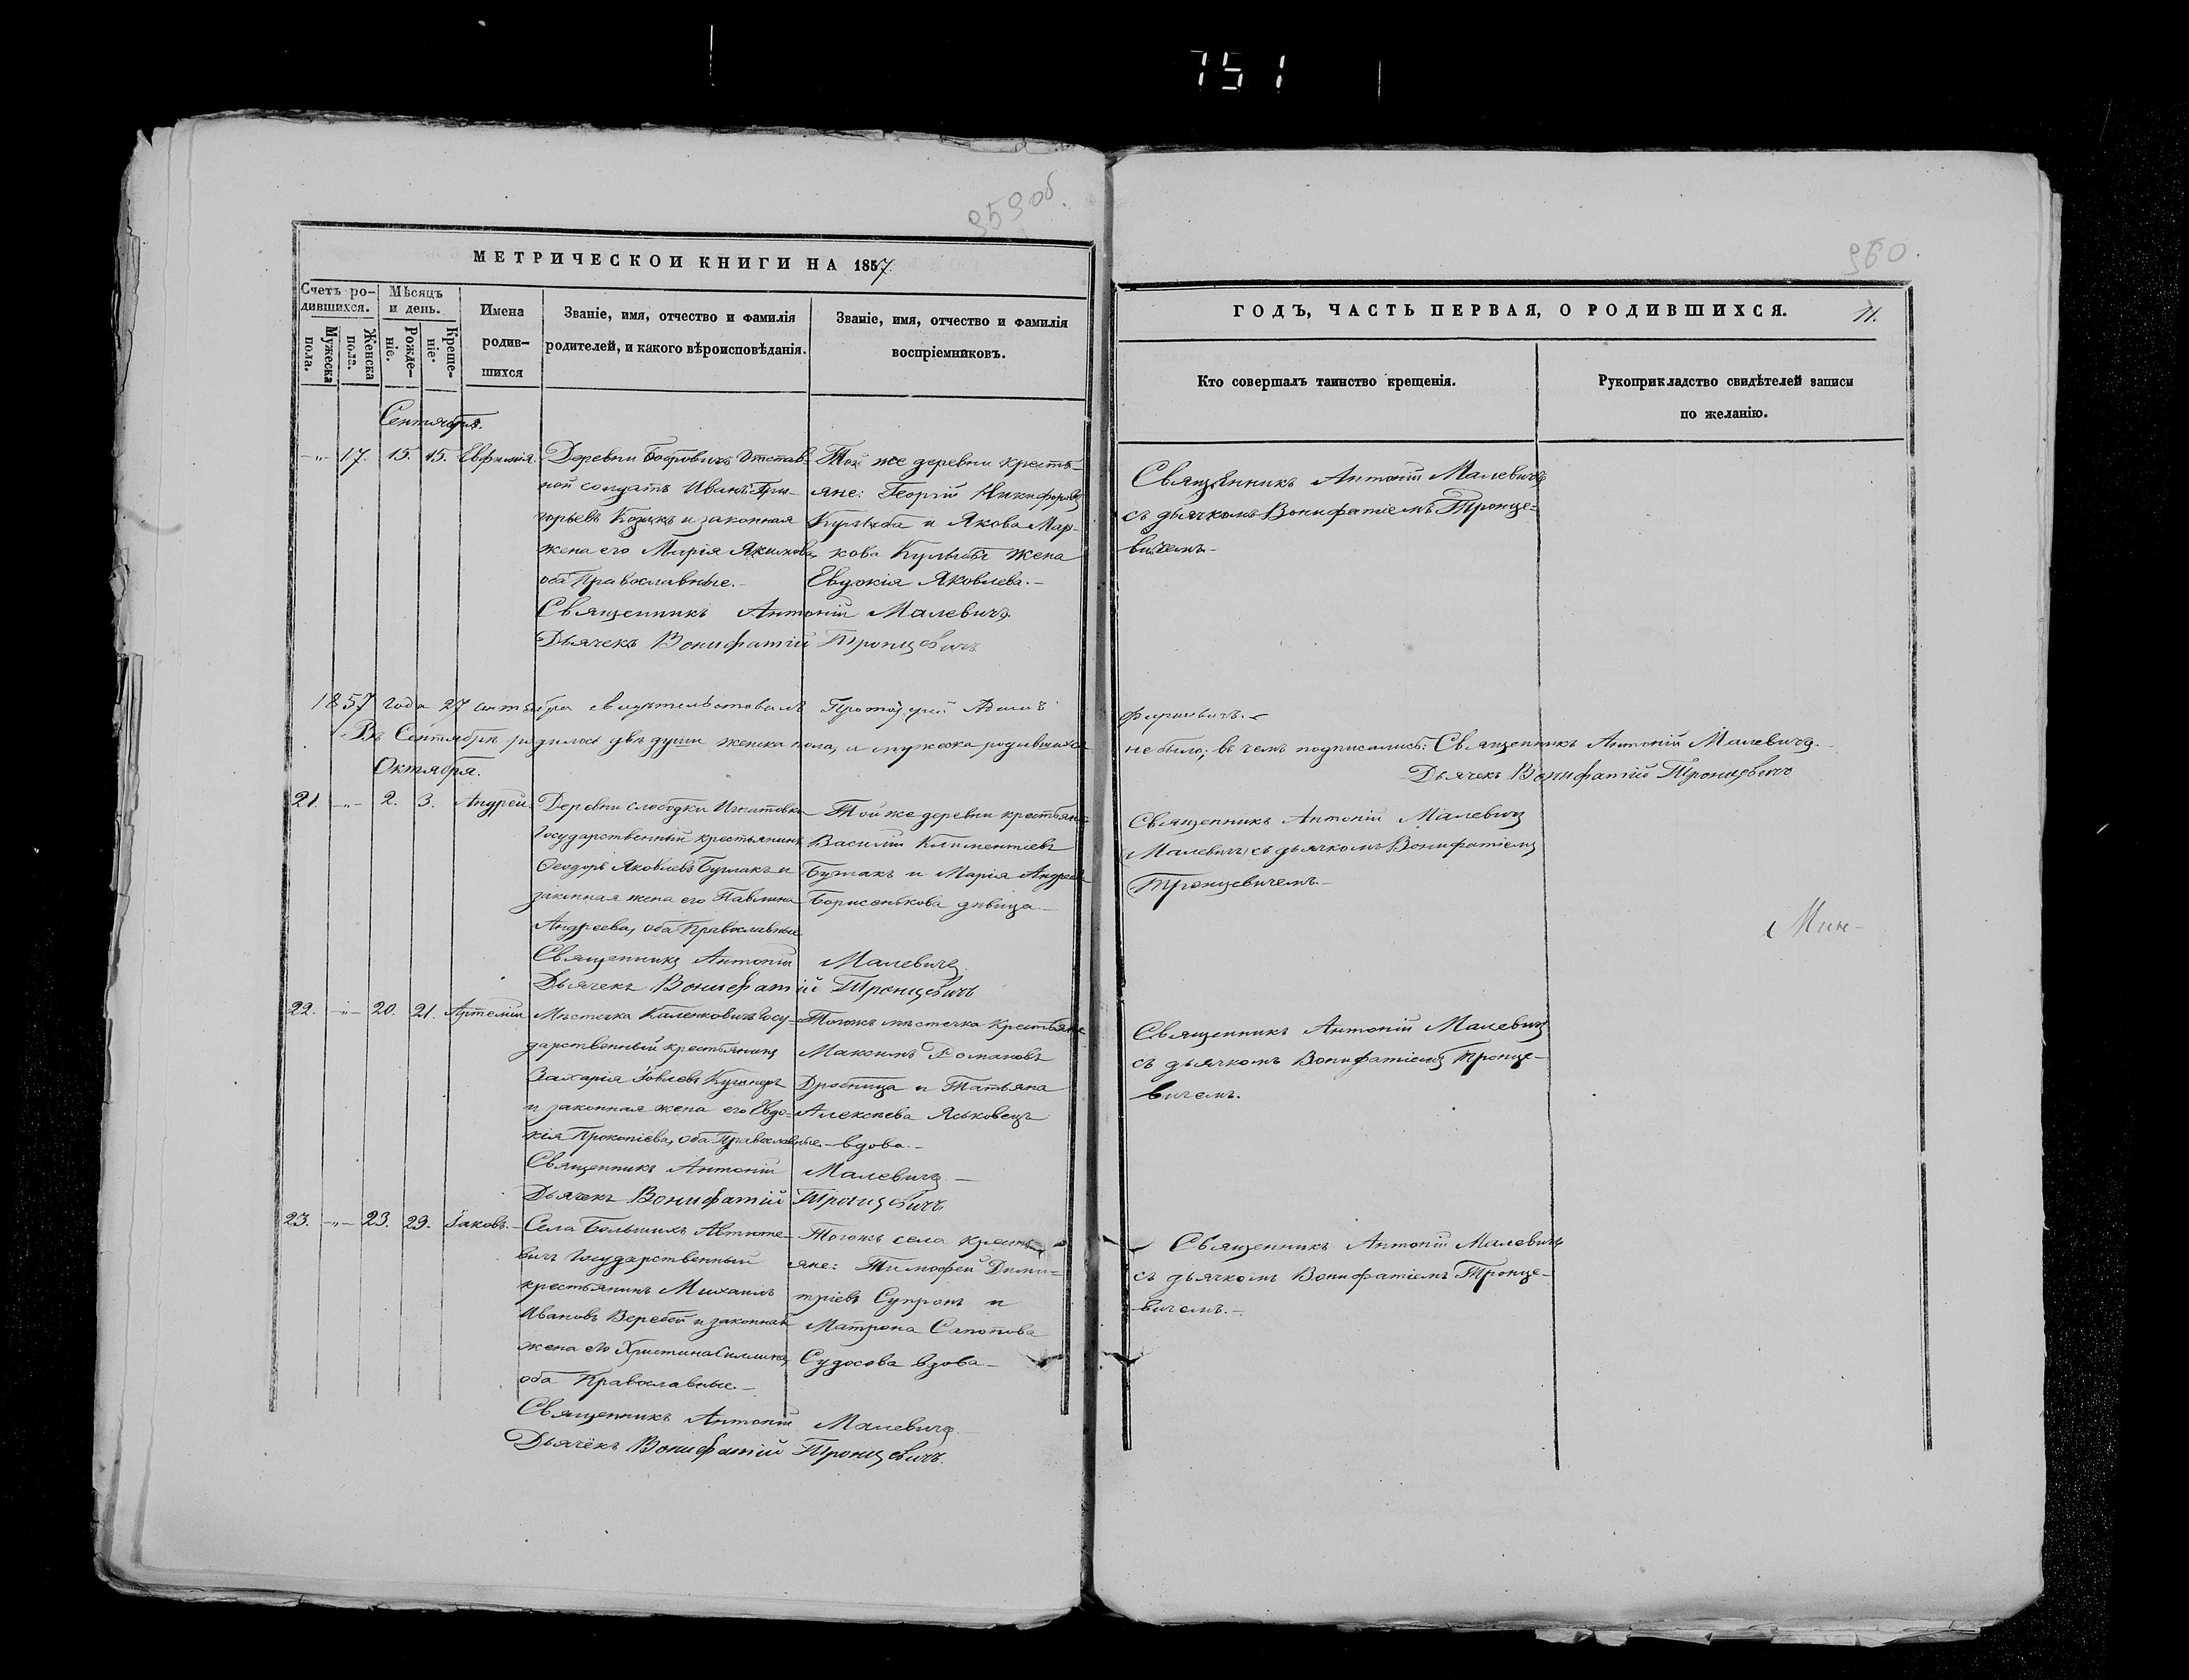 751
959 об.
МЕТРИЧЕСКОЙ КНИГИ НА 1857
Счетъ ро-
дившихся.
Мѣсяцъ
и день.
Мужеска
пола.
Женска
пола.
Рожде-
ніе.
Креще-
ніе.
Имена
родив-
шихся
Званіе, имя, отчество и фамилія
родителей, и какого вѣроисповѣданія.
Званіе, имя, отчество и фамилія
воспріемниковъ.
Сентября.
-"- 17. 15. 15. Евфимія.
Деревни Бобровичъ Отстав-
ной солдатъ Иванъ Гри-
горьевъ Козакъ и законная
жена его Марія Якимова,
оба Православные.-
Той же деревни кресть-
яне: Георгій Никифоровъ
Кулѣба и Якова Мар-
кова Кулѣбы жена
Евдокія Яковлева.-
Священникъ Антоній Малевичъ.
Дьячекъ Вонифатій Тронцевичъ
1857 года 27 сентября свидѣтельствовалъ Протоіерей Адамъ
Въ Сентябрѣ родилось двѣ души женска пола, а мужеска родившихся
Октября.
21. -"- 2. 3. Андрей
Деревни слободки Игнатовки
Государственный крестьянинъ
Ѳеодоръ Яковлевъ Бурлакъ и
законная жена его Павлина
Андреева, оба Православные
Той же деревни крестьяне
Василій Климентіевъ
Бурлакъ и Марія Андреева
Борисенькова дѣвица
Священникъ Антоній Малевичъ
Дьячекъ Вонифатій Тронцевичъ
22. -"- 20. 21. Артемій
Мѣстечка Каленковичъ Госу-
дарственный крестьянинъ
Захарія Іовлевъ
и законная жена его Евдо-
кія Прокопіева, оба Православные.
Тогожъ мѣстечка Крестьяне
Максимъ Романовъ
Дробница и Татьяна
Алексѣева Яськовецъ
вдова.-
Священникъ Антоній Малевичъ
Дьячекъ Вонифатій Тронцевичъ
23. -"- 23. 29. Іаковъ.
Села Большихъ Автюте-
вичъ Государственный
крестьянинъ Михаилъ
Ивановъ Веребей и законная
жена его Христина
оба Православные.-
Тогожъ села кресть-
яне: Тимофей Дими-
тріевъ Супронъ и
Матрона
Судосова вдова-
Священникъ Антоній Малевичъ
Дьячекъ Вонифатій Тронцевичъ.
960.
ГОДЪ, ЧАСТЬ ПЕРВАЯ, О РОДИВШИХСЯ. 11.
Кто совершалъ таинство крещенія.
Рукоприкладство свидѣтелей записи
по желанію.
Священникъ Антоній Малевичъ
съ дьячкомъ Вонифатіемъ Тронце-
вичемъ.-
не было; въ чемъ подписались: Священникъ Антоній Малевичъ.
Дьячекъ Вонифатій Тронцевичъ
Священникъ Антоній Малевичъ
(Малевичъ) съ дьячкомъ Вонифатіемъ
Тронцевичемъ.-
Мин-
Священникъ Антоній Малевичъ
съ дьячкомъ Вонифатіемъ Тронце-
вичемъ.
Священникъ Антоній Малевичъ
съ дьячкомъ Вонифатіемъ Тронце-
вичемъ.-